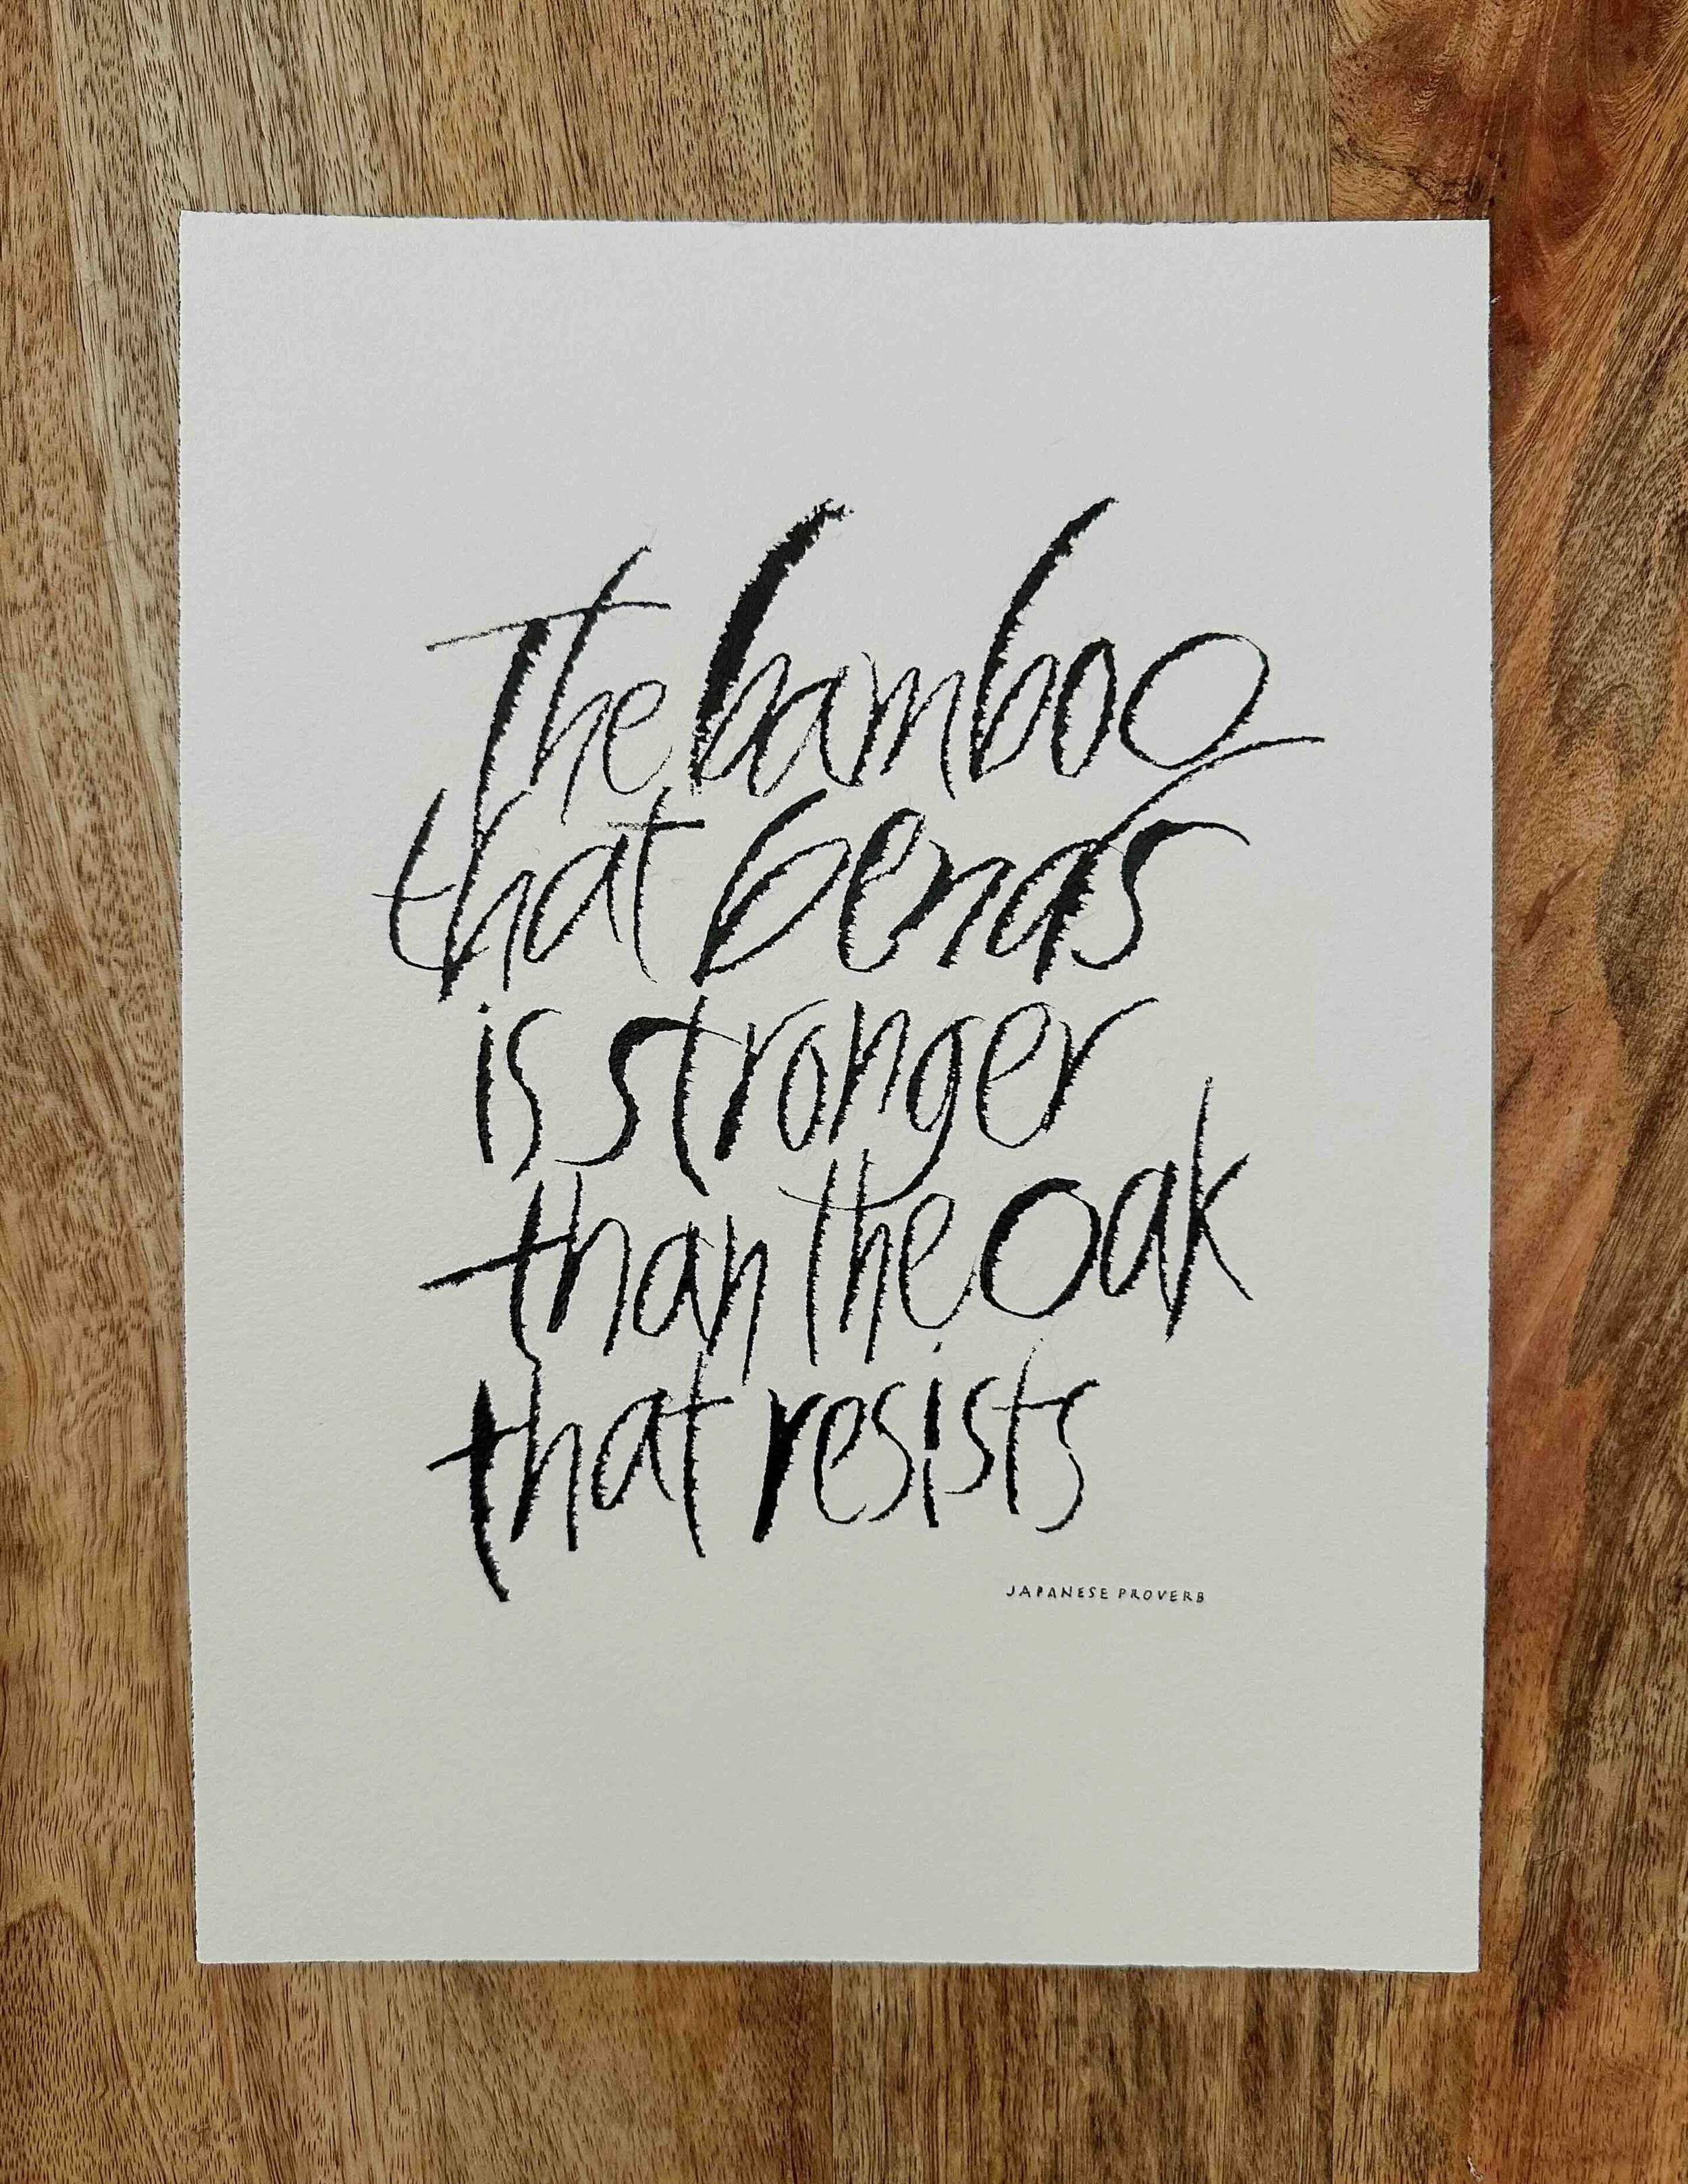 The bamboo
that bends
is stronger
than the oak
that resists
JAPANESE PROVERB